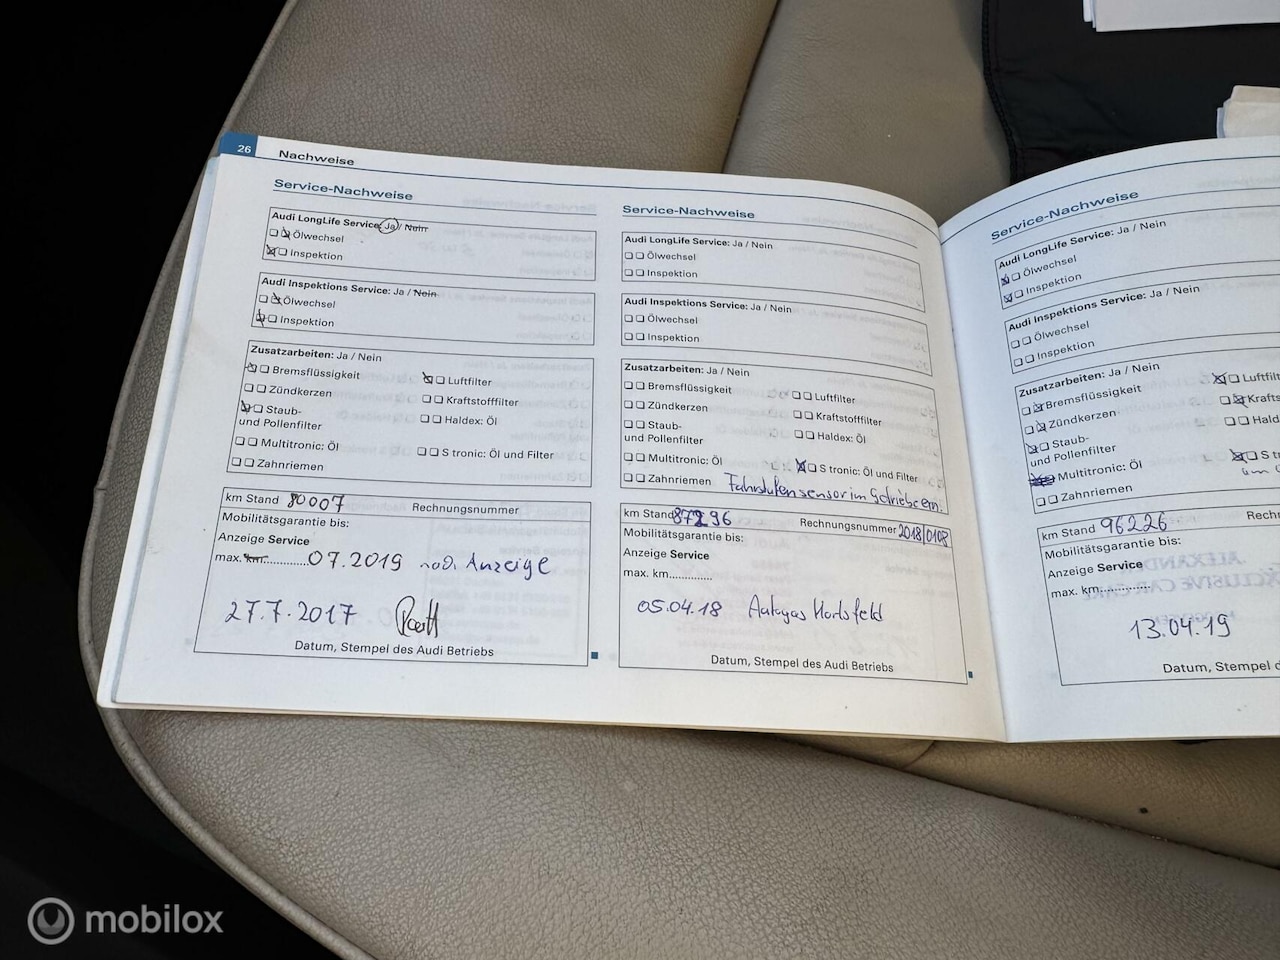 26 Nachweise
Service-Nachweise
Audi LongLife Service: Ja / Nein
Ölwechsel
Inspektion
Audi Inspektions Service: Ja / Nein
Ölwechsel
Inspektion
Zusatzarbeiten: Ja / Nein
Bremsflüssigkeit Luftfilter
Zündkerzen Kraftstofffilter
Staub- Haldex: Öl
und Pollenfilter
Multitronic: Öl S tronic: Öl und Filter
Zahnriemen
km Stand 80007 Rechnungsnummer
Mobilitätsgarantie bis:
Anzeige Service
max. km............. 07.2019 nach Anzeige
27.7.2017
Datum, Stempel des Audi Betriebs
Service-Nachweise
Audi LongLife Service: Ja / Nein
Ölwechsel
Inspektion
Audi Inspektions Service: Ja / Nein
Ölwechsel
Inspektion
Zusatzarbeiten: Ja / Nein
Bremsflüssigkeit Luftfilter
Zündkerzen Kraftstofffilter
Staub- Haldex: Öl
und Pollenfilter
Multitronic: Öl S tronic: Öl und Filter
Zahnriemen Fahrstufensensor im Getriebe
km Stand 87296 Rechnungsnummer 2018/0108
Mobilitätsgarantie bis:
Anzeige Service
max. km.............
05.04.18 Autogas
Datum, Stempel des Audi Betriebs
Service-Nachweise
Audi LongLife Service: Ja / Nein
Ölwechsel
Inspektion
Audi Inspektions Service: Ja / Nein
Ölwechsel
Inspektion
Zusatzarbeiten: Ja / Nein
Bremsflüssigkeit Luftfilt
Zündkerzen Krafts
Staub- Hald
und Pollenfilter
Multitronic: Öl S tr
Zahnriemen
km Stand 96226 Rechn
Mobilitätsgarantie bis:
Anzeige Service
max. km.............
13.04.19
Datum, Stempel d
mobilox